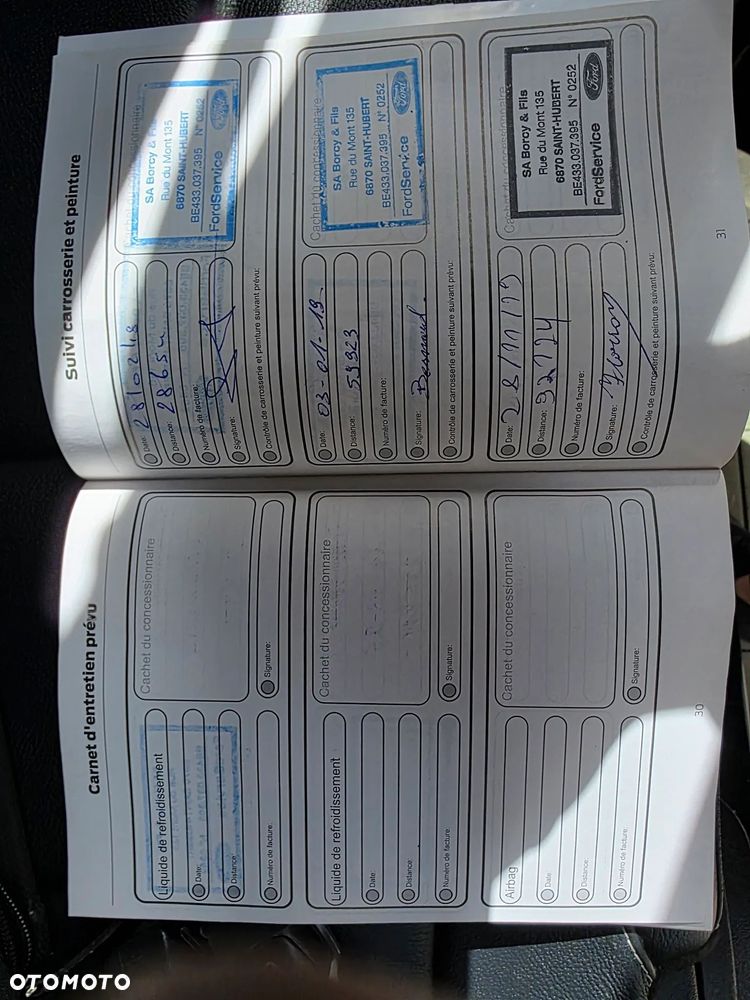 Carnet d'entretien prévu
Liquide de refroidissement
Date:
Distance:
Numéro de facture:
Cachet du concessionnaire
Signature:
Liquide de refroidissement
Date:
Distance:
Numéro de facture:
Cachet du concessionnaire
Signature:
Airbag
Date:
Distance:
Numéro de facture:
Cachet du concessionnaire
Signature:
30
Suivi carrosserie et peinture
Date: 28/02/18
Distance: 28654
Numéro de facture:
Signature:
Contrôle de carrosserie et peinture suivant prévu:
Cachet du concessionnaire
SA Borcy & Fils
Rue du Mont 135
6870 SAINT-HUBERT
BE433.037.395 N° 0252
FordService
Ford
Date: 03-01-19
Distance: 59323
Numéro de facture:
Signature:
Contrôle de carrosserie et peinture suivant prévu:
Cachet du concessionnaire
SA Borcy & Fils
Rue du Mont 135
6870 SAINT-HUBERT
BE433.037.395 N° 0252
FordService
Ford
Date: 28/11/19
Distance: 92124
Numéro de facture:
Signature:
Contrôle de carrosserie et peinture suivant prévu:
SA Borcy & Fils
Rue du Mont 135
6870 SAINT-HUBERT
BE433.037.395 N° 0252
FordService
Ford
31
OTOMOTO